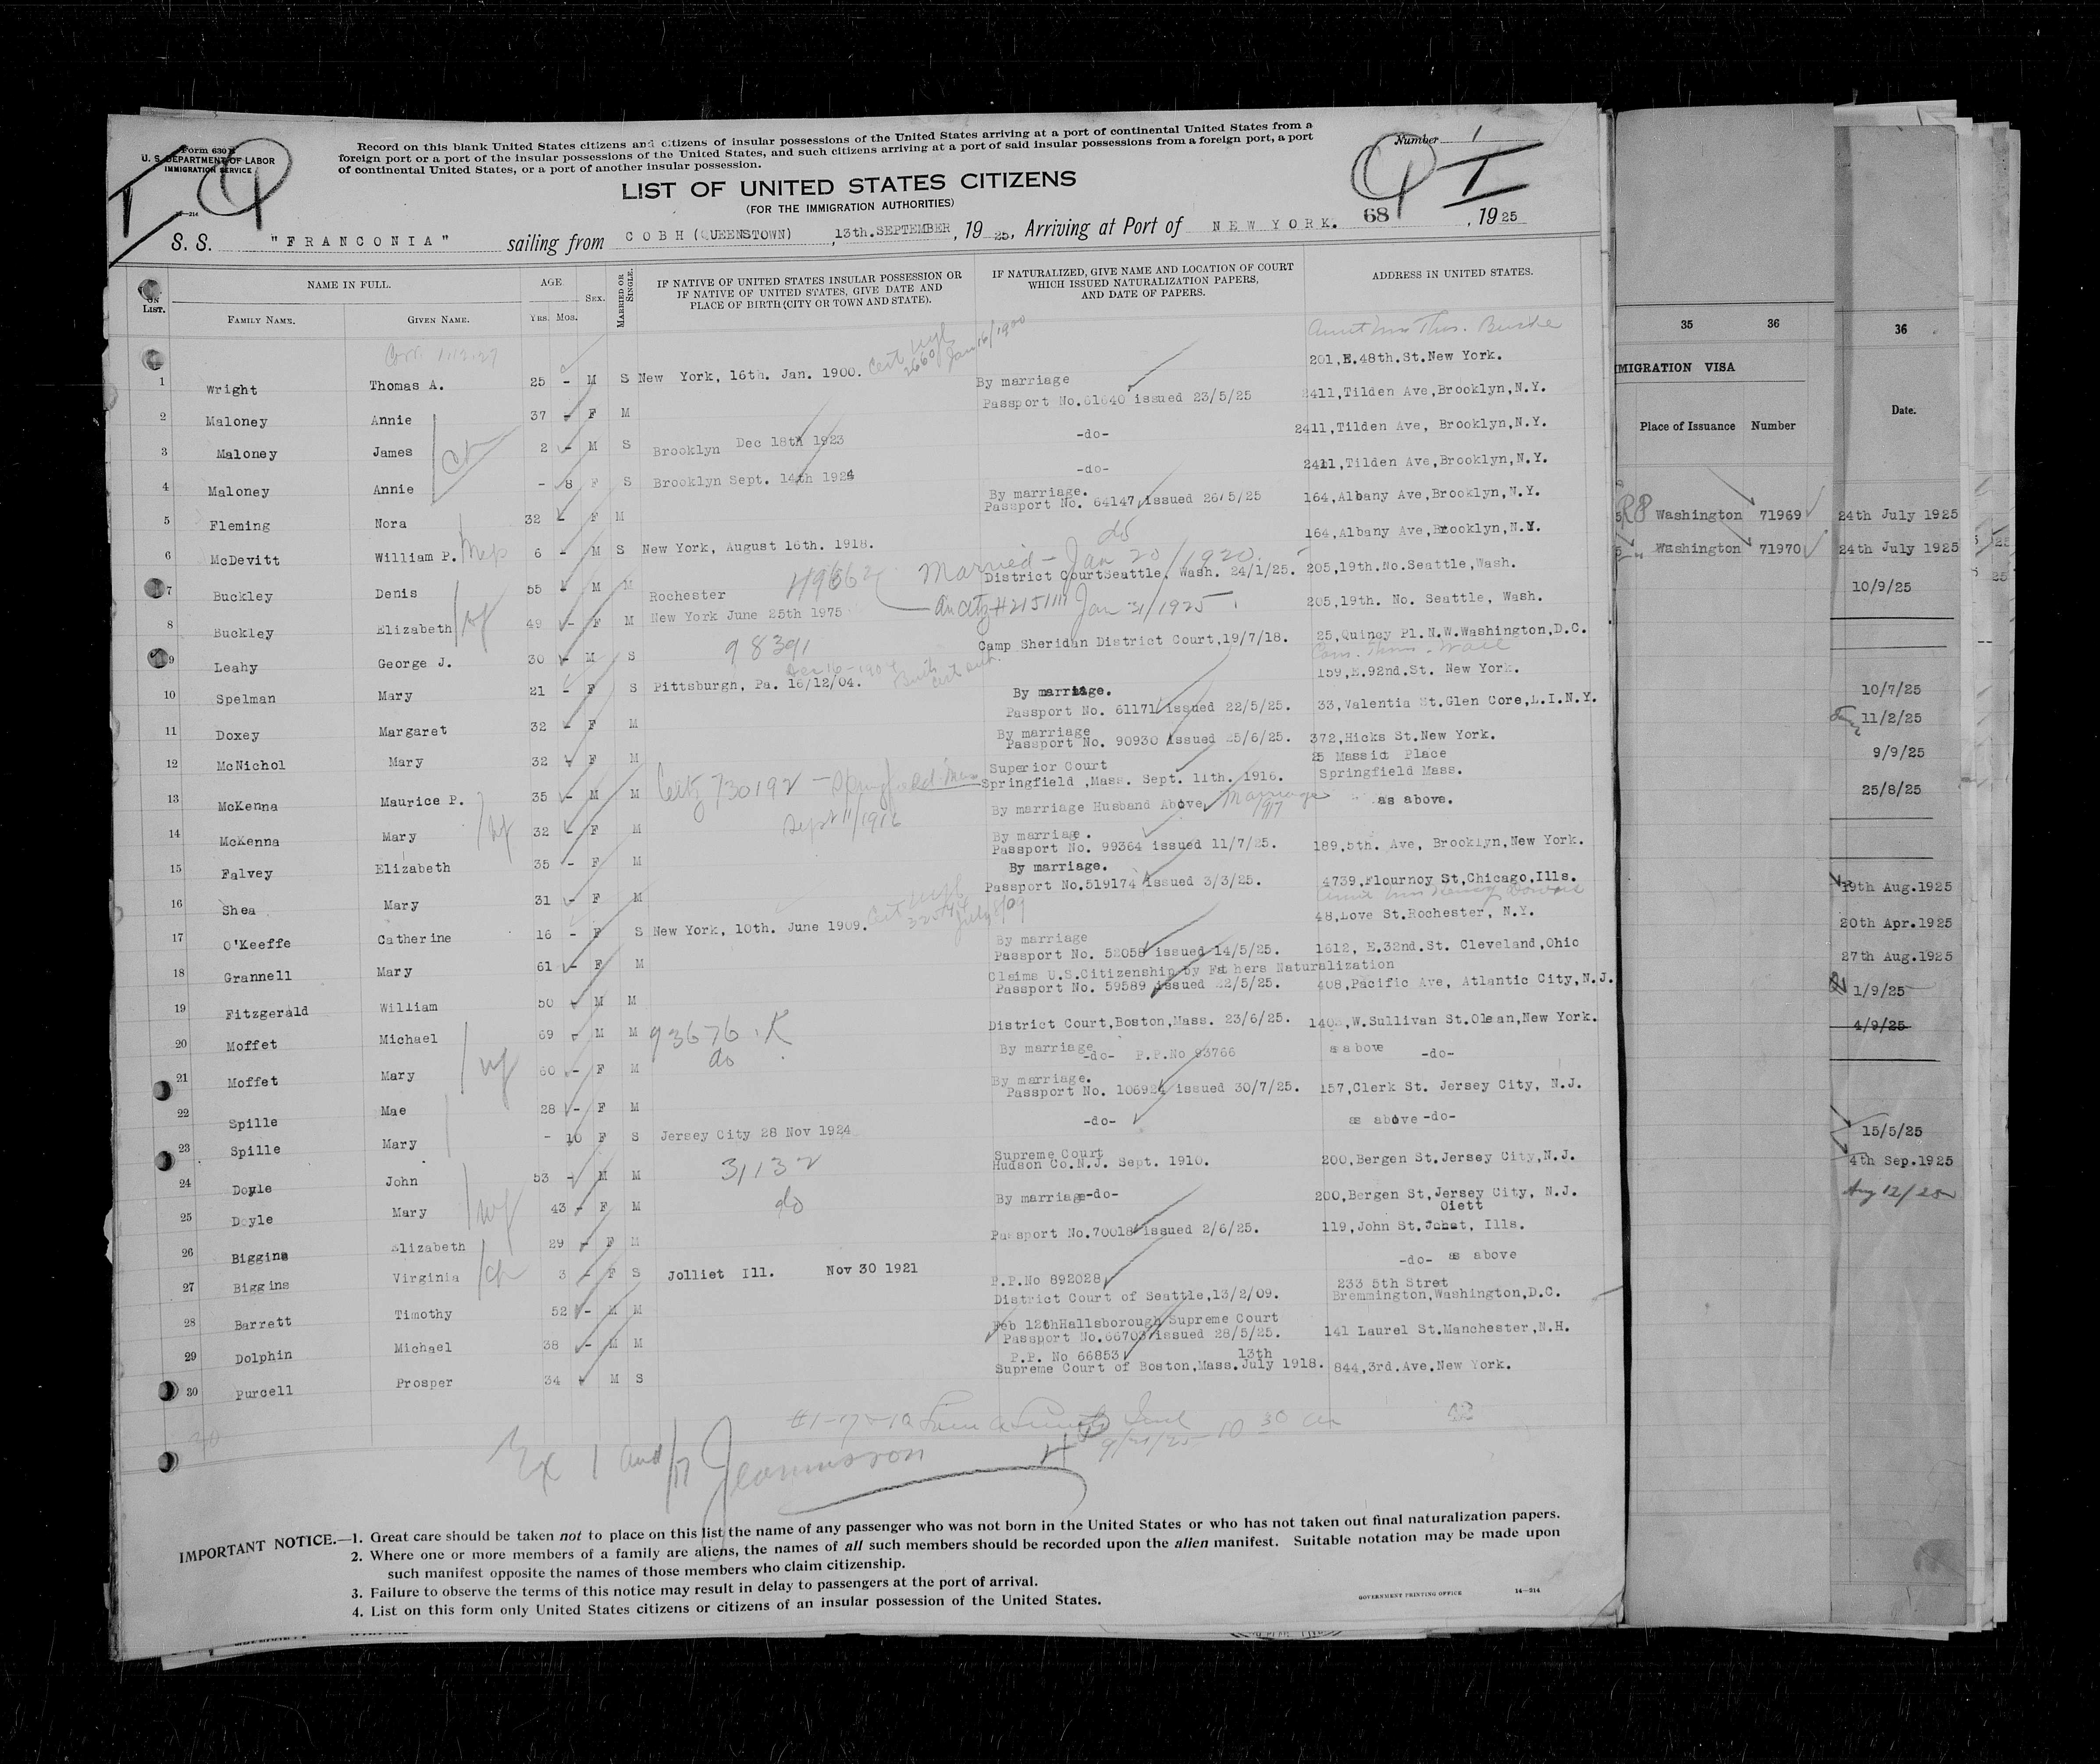 Form 630 B
U. S. DEPARTMENT OF LABOR
IMMIGRATION SERVICE
14—214
Record on this blank United States citizens and citizens of insular possessions of the United States arriving at a port of continental United States from a
foreign port or a port of the insular possessions of the United States, and such citizens arriving at a port of said insular possessions from a foreign port, a port
of continental United States, or a port of another insular possession.
Number 1
LIST OF UNITED STATES CITIZENS
(FOR THE IMMIGRATION AUTHORITIES)
68
S. S. "FRANCONIA" sailing from COBH (QUEENSTOWN) ,13th.SEPTEMBER, 1925, Arriving at Port of NEW YORK. , 1925
ON LIST. NAME IN FULL. AGE SEX. MARRIED OR SINGLE. IF NATIVE OF UNITED STATES INSULAR POSSESSION OR IF NATIVE OF UNITED STATES, GIVE DATE AND PLACE OF BIRTH (CITY OR TOWN AND STATE). IF NATURALIZED, GIVE NAME AND LOCATION OF COURT WHICH ISSUED NATURALIZATION PAPERS, AND DATE OF PAPERS. ADDRESS IN UNITED STATES.
FAMILY NAME. GIVEN NAME. YRS. MOS.
1 Wright Thomas A. 25 - M S New York, 16th. Jan. 1900. Jan 16/1900 201,E.48th.St.New York.
2 Maloney Annie 37 - F M By marriage Passport No.61640 issued 23/5/25 2411,Tilden Ave,Brooklyn,N.Y.
3 Maloney James 2 - M S Brooklyn Dec 18th 1923 -do- 2411,Tilden Ave, Brooklyn,N.Y.
4 Maloney Annie - 8 F S Brooklyn Sept. 14th 1924 -do- 2411,Tilden Ave,Brooklyn,N.Y.
5 Fleming Nora 32 - F M By marriage. Passport No. 64147 issued 26/5/25 164,Albany Ave,Brooklyn,N.Y.
6 McDevitt William P. 6 - M S New York, August 16th. 1918. do 164,Albany Ave,Brooklyn,N.Y.
Married - Jan 20/1920.
7 Buckley Denis 55 - M M District CourtSeattle. Wash. 24/1/25. 205,19th.No.Seattle,Wash.
8 Buckley Elizabeth wf 49 - F M Rochester New York June 25th 1975 Jan 21/1925 205,19th. No. Seattle, Wash.
9 Leahy George J. 30 - M S 98391 Camp Sheridan District Court,19/7/18. 25,Quincy Pl.N.W.Washington,D.C.
10 Spelman Mary 21 - F S Pittsburgh, Pa. 16/12/04. 159,E.92nd.St. New York.
11 Doxey Margaret 32 - F M By marriage. Passport No. 61171 issued 22/5/25. 33,Valentia St.Glen Core,L.I.N.Y.
12 McNichol Mary 32 - F M By marriage Passport No. 90930 issued 25/6/25. 372,Hicks St.New York.
13 McKenna Maurice P. 35 - M M Springfield Mass Sept 11/1916 Superior Court Springfield ,Mass. Sept. 11th. 1916. 25 Massid Place Springfield Mass.
14 McKenna Mary wf 32 - F M By marriage Husband Above Marriage 1917 as above.
15 Falvey Elizabeth 35 - F M By marriage. Passport No. 99364 issued 11/7/25. 189,5th. Ave, Brooklyn,New York.
16 Shea Mary 31 - F M By marriage. Passport No.519174 issued 3/3/25. 4739,Flournoy St,Chicago,Ills.
17 O'Keeffe Catherine 16 - F S New York, 10th. June 1909. 48,Love St.Rochester, N.Y.
18 Grannell Mary 61 - F M By marriage Passport No. 52058 issued 14/5/25. 1612, E.32nd.St. Cleveland,Ohio
19 Fitzgerald William 50 - M M Claims U.S.Citizenship by Fathers Naturalization Passport No. 59589 issued 22/5/25. 408,Pacific Ave, Atlantic City,N.J.
20 Moffet Michael 69 - M M 93676 District Court,Boston,Mass. 23/6/25. W.Sullivan St.Olean,New York.
21 Moffet Mary wf 60 - F M do By marriage -do- P.P.No 93766 as above -do-
22 Spille Mae 28 - F M By marriage. Passport No. 106924 issued 30/7/25. 157,Clerk St. Jersey City, N.J.
23 Spille Mary - 10 F S Jersey City 28 Nov 1924 -do- as above -do-
24 Doyle John 53 - M M 31132 Supreme Court Hudson Co.N.J. Sept. 1910. 200,Bergen St.Jersey City,N.J.
25 Doyle Mary wf 43 - F M do By marriage-do- 200,Bergen St,Jersey City, N.J.
26 Biggins Elizabeth 29 - F M Passport No.70018 issued 2/6/25. 119,John St. Oiett, Ills.
27 Biggins Virginia ch 3 - F S Jolliet Ill. Nov 30 1921 -do- as above
28 Barrett Timothy 52 - M M P.P.No 892028 District Court of Seattle,13/2/09. 233 5th Stret Bremmington,Washington,D.C.
29 Dolphin Michael 38 - M M Feb 12thHallsborough Supreme Court Passport No.66703 issued 28/5/25. 141 Laurel St.Manchester,N.H.
30 Purcell Prosper 34 - M S P.P. No 66853 Supreme Court of Boston,Mass.July 13th 1918. 844,3rd.Ave.New York.
Ex 1 and 17
IMPORTANT NOTICE.—1. Great care should be taken not to place on this list the name of any passenger who was not born in the United States or who has not taken out final naturalization papers.
2. Where one or more members of a family are aliens, the names of all such members should be recorded upon the alien manifest. Suitable notation may be made upon
such manifest opposite the names of those members who claim citizenship.
3. Failure to observe the terms of this notice may result in delay to passengers at the port of arrival.
4. List on this form only United States citizens or citizens of an insular possession of the United States.
GOVERNMENT PRINTING OFFICE 14—214
35 36
MIGRATION VISA
Place of Issuance Number
Washington 71969
Washington 71970
36
Date.
24th July 1925
24th July 1925
10/9/25
10/7/25
11/2/25
9/9/25
25/8/25
19th Aug.1925
20th Apr.1925
27th Aug.1925
1/9/25
4/9/25
15/5/25
4th Sep.1925
Aug 12/25